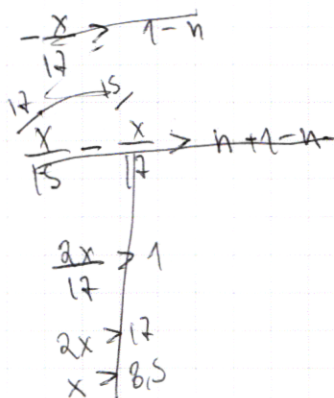 -x/17 > 1-n
17 15
x/15 - x/17 > n+1-n
2x/17 > 1
2x > 17
x > 8,5